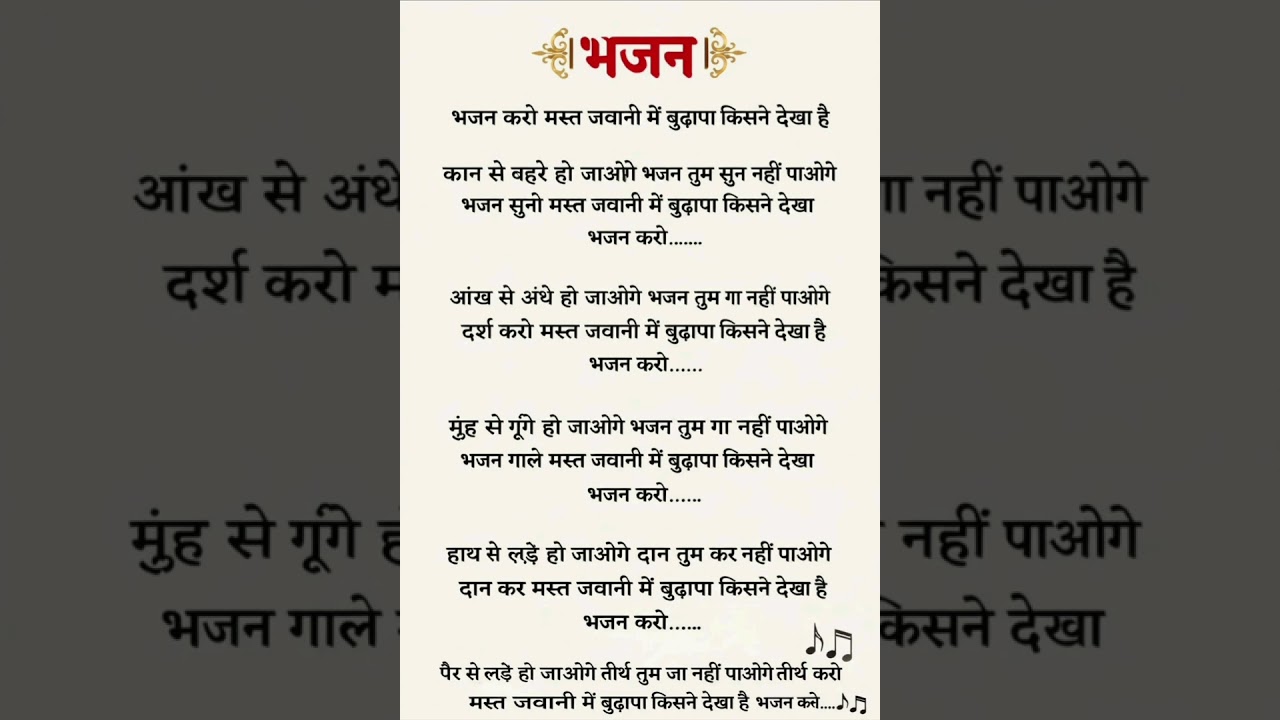 भजन
भजन करो मस्त जवानी में बुढ़ापा किसने देखा है
कान से वहरे हो जाओगे भजन तुम सुन नहीं पाओगे
भजन सुनो मस्त जवानी में बुढ़ापा किसने देखा
भजन करो.......
आंख से अंथे हो जाओगे भजन तुम गा नहीं पाओगे
दर्श करो मस्त जवानी में बुढ़ापा किसने देखा है
भजन करो......
मुंह से गूंगे हो जाओगे भजन तुम गा नहीं पाओगे
भजन गाले मस्त जवानी में बुढ़ापा किसने देखा
भजन करो......
हाथ से लड़ें हो जाओगे दान तुम कर नहीं पाओगे
दान कर मस्त जवानी में बुढ़ापा किसने देखा है
भजन करो......
पैर से लड़ें हो जाओगे तीर्थ तुम जा नहीं पाओगे तीर्थ करो
मस्त जवानी में बुढ़ापा किसने देखा है भजन करो....